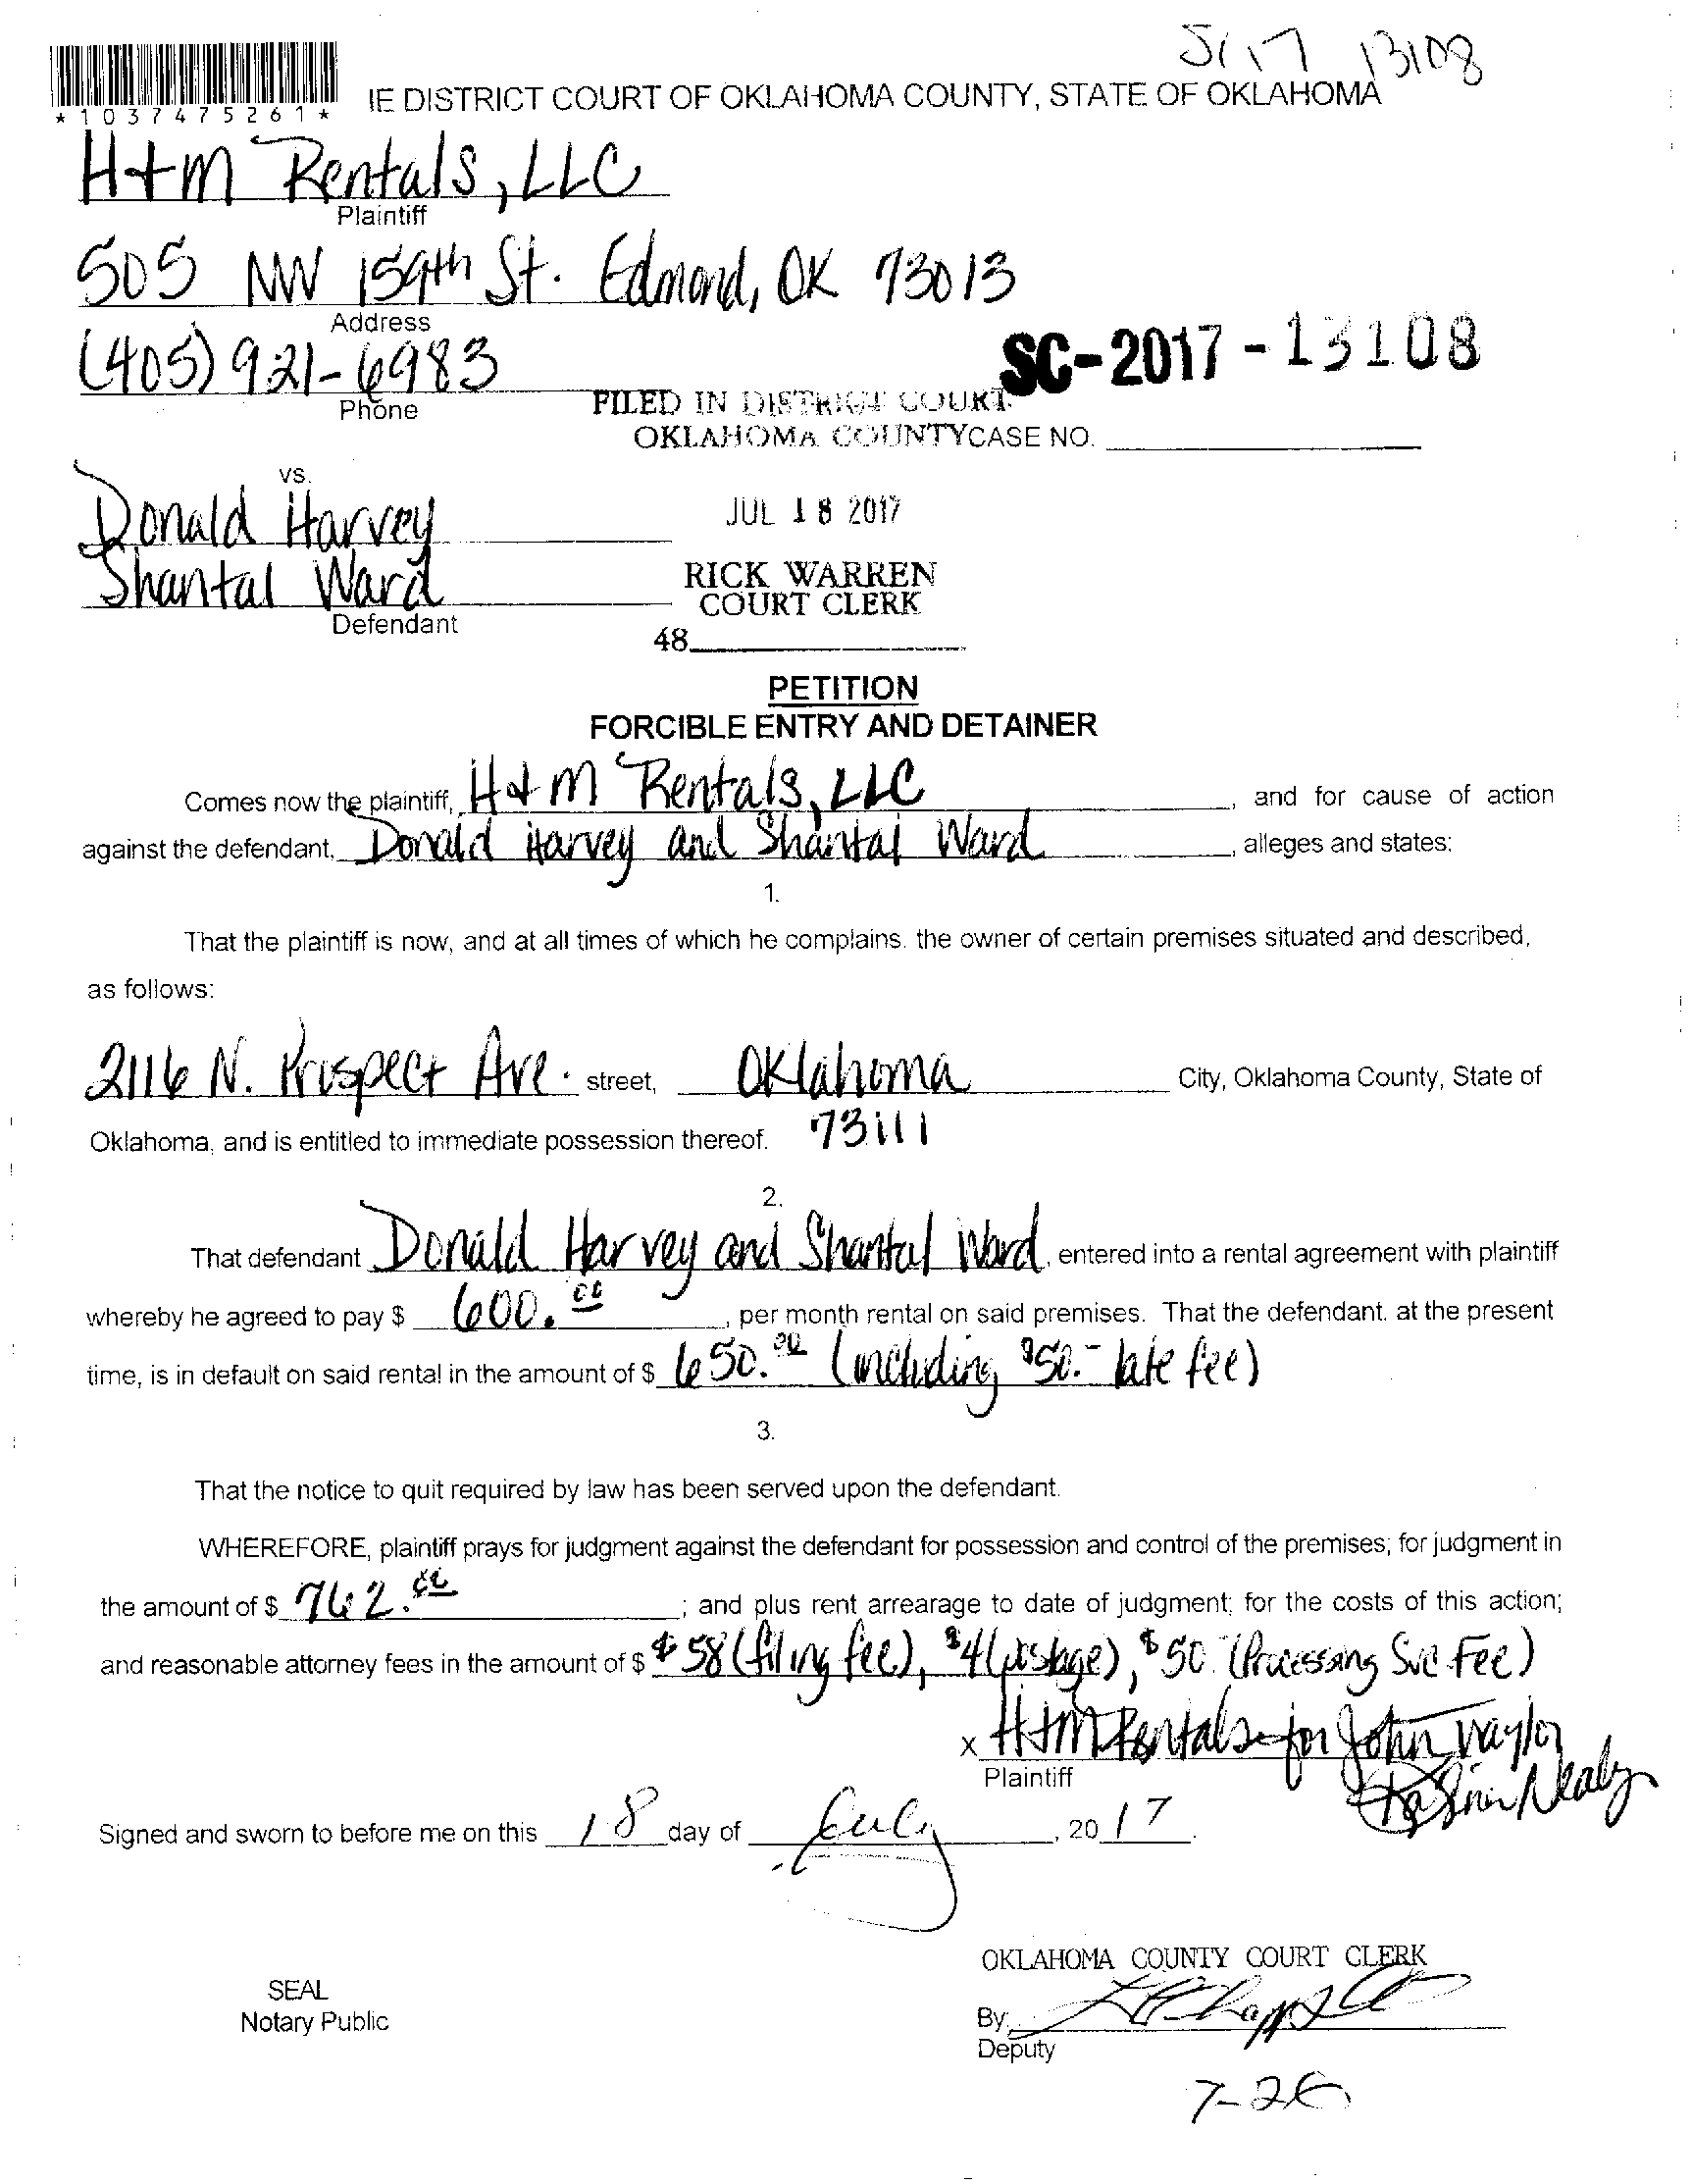 SC17 13108
IE DISTRICT COURT OF OKLAHOMA COUNTY, STATE OF OKLAHOMA
*1037475261*
H+M Rentals, LLC
Plaintiff
505 NW 159th St. Edmond, OK 73013
Address
(405) 921-6983
Phone
SC-2017-13108
FILED IN DISTRICT COURT
OKLAHOMA COUNTY CASE NO.
vs.
Donald Harvey
Shantal Ward
Defendant
JUL 18 2017
RICK WARREN
COURT CLERK
48
PETITION
FORCIBLE ENTRY AND DETAINER
Comes now the plaintiff, H+M Rentals, LLC, and for cause of action
against the defendant, Donald Harvey and Shantal Ward, alleges and states:
1.
That the plaintiff is now, and at all times of which he complains, the owner of certain premises situated and described,
as follows:
2116 N. Prospect Ave. street, Oklahoma City, Oklahoma County, State of
Oklahoma, and is entitled to immediate possession thereof. 73111
2.
That defendant Donald Harvey and Shantal Ward, entered into a rental agreement with plaintiff
whereby he agreed to pay $ 600.00, per month rental on said premises. That the defendant, at the present
time, is in default on said rental in the amount of $ 650.00 (including $50.- late fee)
3.
That the notice to quit required by law has been served upon the defendant.
WHEREFORE, plaintiff prays for judgment against the defendant for possession and control of the premises; for judgment in
the amount of $ 762.00; and plus rent arrearage to date of judgment; for the costs of this action;
and reasonable attorney fees in the amount of $ $58 (filing fee), $4 (postage), $50.- (Processing Svc Fee)
x H+M Rentals for John Traylor
Plaintiff
Nealy
Signed and sworn to before me on this 18 day of July, 2017.
OKLAHOMA COUNTY COURT CLERK
SEAL
Notary Public
By:
Deputy
7-26